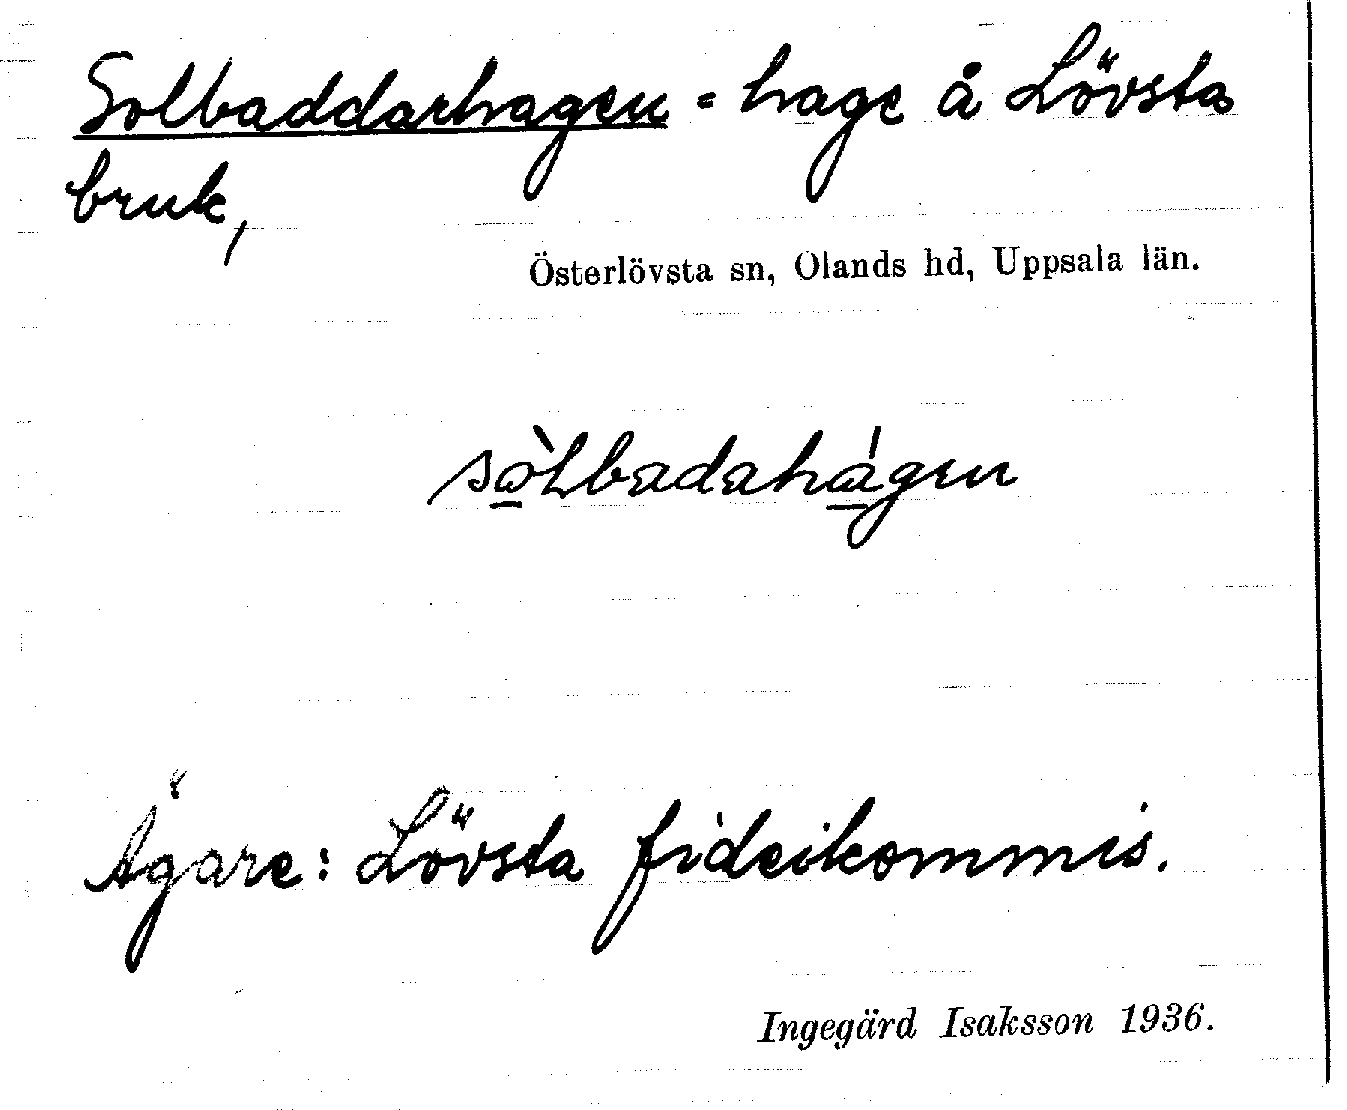 Solbaddarhagen = hage å Lövsta
bruk,
Österlövsta sn, Olands hd, Uppsala län.
sòlbadahágen
Ägare: Lövsta fideikommis.
Ingegärd Isaksson 1936.